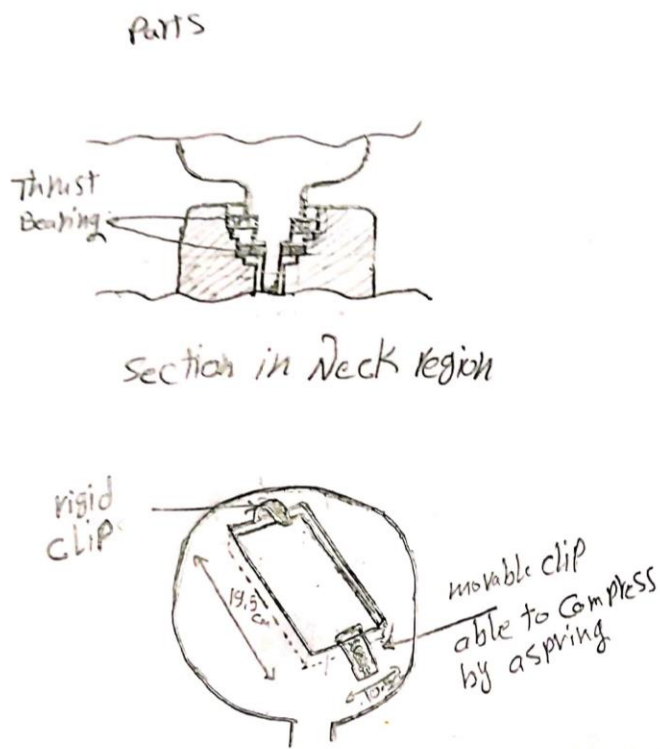 Parts
Thrust
Bearing
Section in Neck region
rigid
clip
19.5
cm
movable clip
able to compress
by aspring
10.5